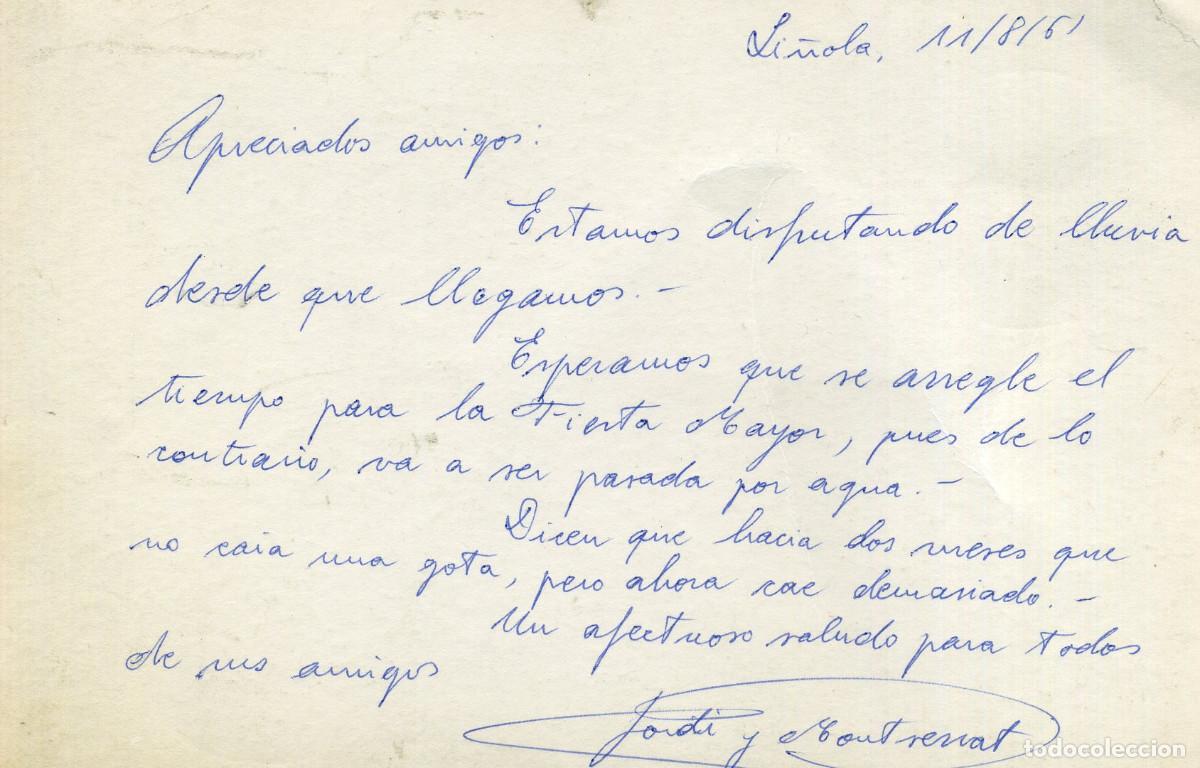 Liñola, 11/8/61
Apreciados amigos:
Estamos disfrutando de lluvia
desde que llegamos.-
Esperamos que se arregle el
tiempo para la Fiesta Mayor, pues de lo
contrario, va a ser pasada por agua.-
Dicen que hacia dos meses que
no caia una gota, pero ahora cae demasiado.-
Un afectuoso saludo para todos
de sus amigos
Jordi y Montserrat
todocoleccion